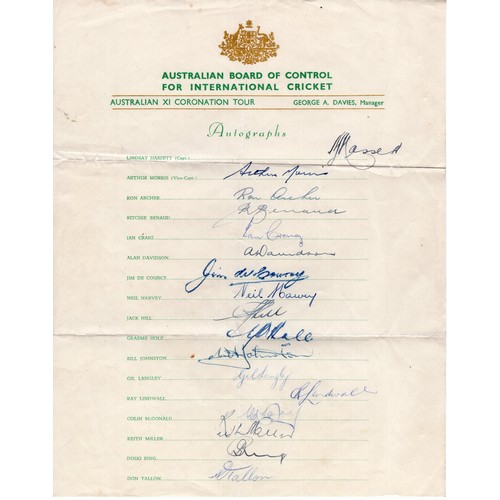 AUSTRALIAN BOARD OF CONTROL
FOR INTERNATIONAL CRICKET
AUSTRALIAN XI CORONATION TOUR GEORGE A. DAVIES, Manager
Autographs
LINDSAY HASSETT (Capt.) Hassett
ARTHUR MORRIS (Vice-Capt.) Arthur Morris
RON ARCHER Ron Archer
RITCHIE BENAUD R Benaud
IAN CRAIG Ian Craig
ALAN DAVIDSON A Davidson
JIM DE COURCY Jim de Courcy
NEIL HARVEY Neil Harvey
JACK HILL J Hill
GRAEME HOLE
BILL JOHNSTON Johnston
GIL LANGLEY Gil Langley
RAY LINDWALL R Lindwall
COLIN McDONALD
KEITH MILLER
DOUG RING D Ring
DON TALLON D Tallon